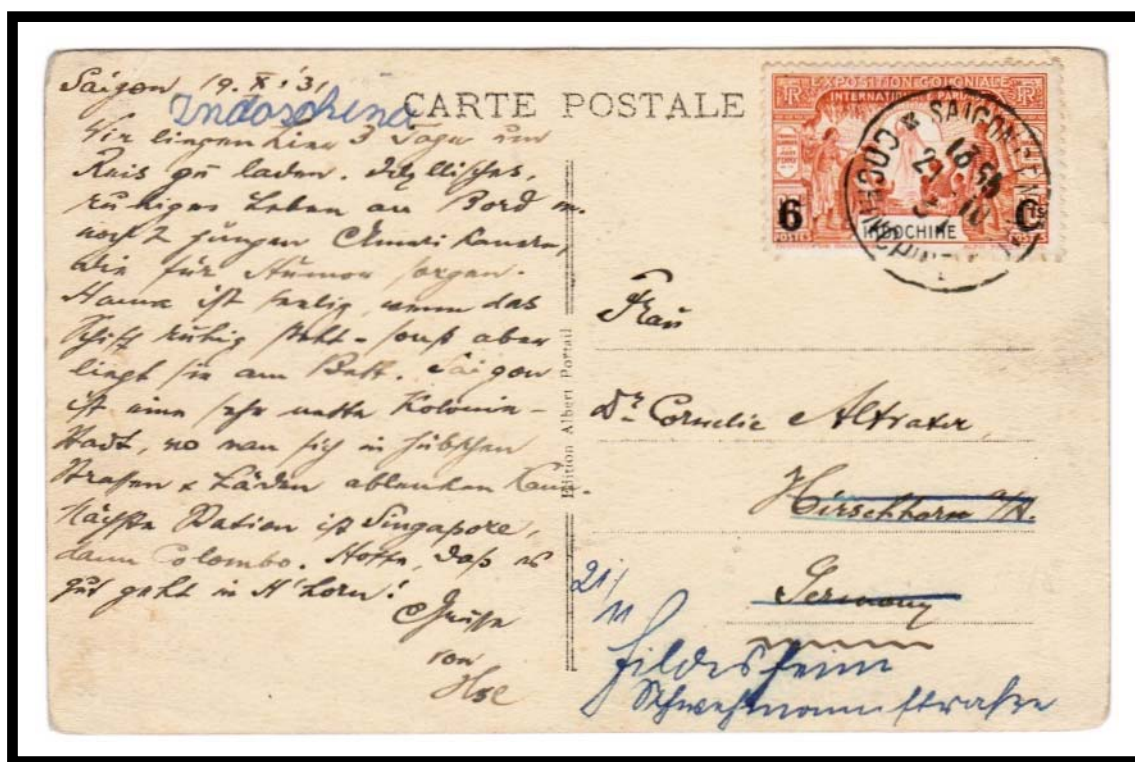 Saigon 19. X. '31
Indochina
CARTE POSTALE
Wir liegen hier 3 Tage um
Reis zu laden. Idyllisches,
ruhiges Leben an Bord m.
noch 2 jungen Amerikanern,
die für Humor sorgen.
ist seelig, wenn das
Schiff ruhig steht - sonst aber
liegt sie am Bett. Saigon
ist eine sehr nette Kolonie-
stadt, wo man sich in hübschen
Strassen & Läden ablenken kann.
Nächste Station ist Singapore,
dann Colombo. Hoffe, daß es
gut geht in H'horn!
Grüsse
von
Edition Albert Portail
EXPOSITION COLONIALE
INTERNATIONALE PARIS
RF
RF
6
Cts
POSTES
INDOCHINE
SAIGON-CENTRAL
COCHINCHINE
Frau
Dr. Cornelie Altvater,
Hirschhorn a/N.
Germany
21/11
Hildesheim